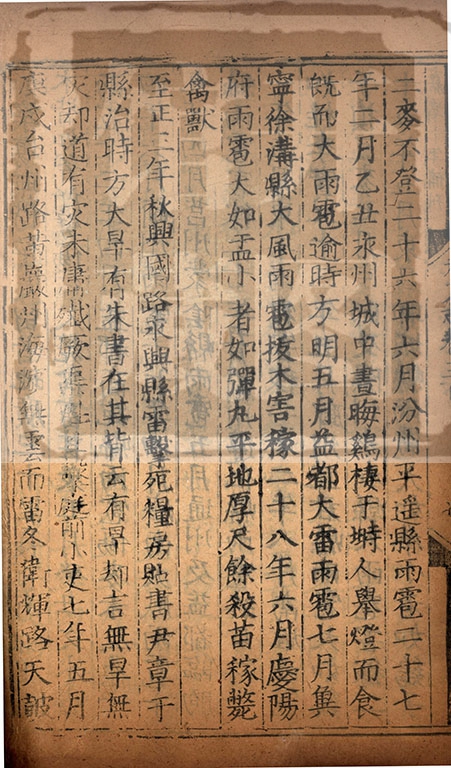 二麥不登二十六年六月汾州平遥縣雨雹二十七
年二月乙丑永州城中晝晦鷄棲于塒人舉燈而食
旣而大雨雹逾時方明五月益都大雷雨雹七月兾
寧徐溝縣大風雨雹拔木害稼二十八年六月慶陽
府雨雹大如盂小者如彈丸平地厚尺餘殺苗稼斃
禽獸
至正三年秋興國路永興縣雷擊死糧房貼書尹章于
縣治時方大旱有朱書在其背云有旱却言無旱無
灾却道有灾未庸殱厥渠且擊庭前小吏七年五月
庚戌台州路黄巖州海濵無雲而雷冬衛輝路天鼓